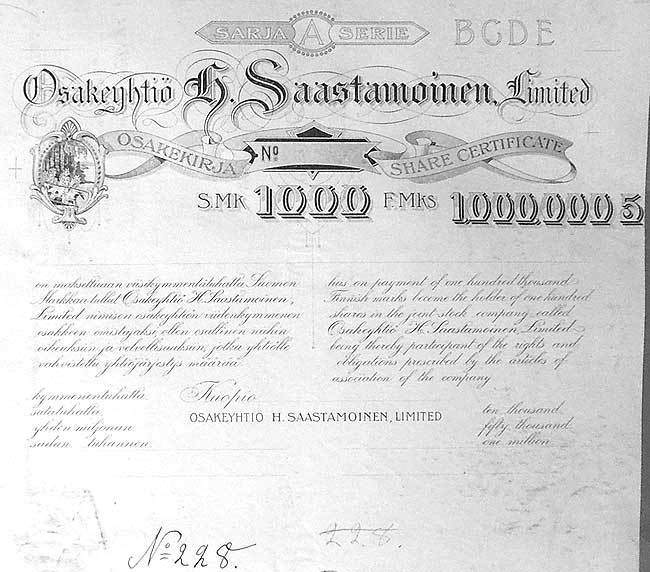 SARJA A SERIE BCDE
Osakeyhtiö H. Saastamoinen, Limited
OSAKEKIRJA No SHARE CERTIFICATE
S.MK 1000 F.MKS 1000,000 5
on maksettuaan viisikymmentätuhatta Suomen
Markkaa tullut Osakeyhtiö H. Saastamoinen,
Limited nimisen osakeyhtiön viidenkymmenen
osakkeen omistajaksi ollen osallinen niihin
oikeuksiin ja velvollisuuksiin, jotka yhtiölle
vahvistettu yhtiöjärjestys määrää.
has on payment of one hundred thousand
Finnish marks become the holder of one hundred
shares in the joint stock company called
Osakeyhtiö H. Saastamoinen, Limited
being thereby participant of the rights and
obligations prescribed by the articles of
association of the company
kymmenentuhatta
satatuhatta
yhden miljonan
sadan tuhannen
Kuopio
OSAKEYHTIO H. SAASTAMOINEN, LIMITED
ten thousand
fifty thousand
one million
No 228.
228.